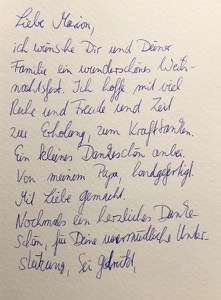 Liebe Marion,
ich wünsche Dir und Deiner
Familie ein wunderschönes Weih-
nachtsfest. Ich hoffe mit viel
Ruhe und Freude und Zeit
zur Erholung, zum Krafttanken.
Ein kleines Dankeschön anbei.
Von meinem Papa handgefertigt.
Mit Liebe gemacht.
Nochmals ein herzliches Danke-
schön, für Deine unermüdliche Unter-
stützung, Sei